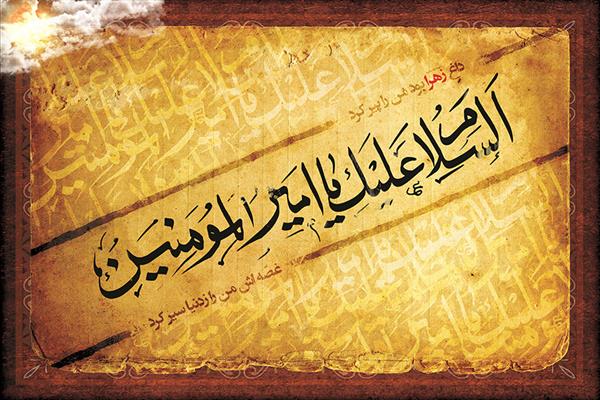 داغ زهرا بود من را پیر کرد
السلام علیك یا امیر المؤمنین
غصه اش من را ز دنیا سیر کرد